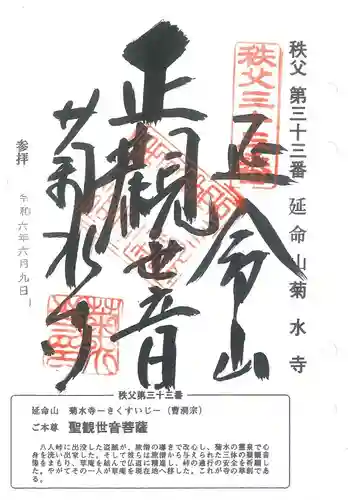 秩父 第三十三番 延命山 菊水寺
秩父三十三
延命山
正観世音
菊水寺
参拝
令和六年六月九日
秩父第三十三番
延命山 菊水寺ーきくすいじー (曹洞宗)
ご本尊 聖観世音菩薩
八人峠に出没した盗賊が、旅僧の導きで改心し、菊水の霊泉で心
身を洗い出家した。そして彼らは旅僧から与えられた三体の聖観音
像をまもり、草庵を結んで仏道に精進し、峠の通行の安全を祈願し
た。やがてその一人が草庵を現在地へ移した。これが寺の草創である。